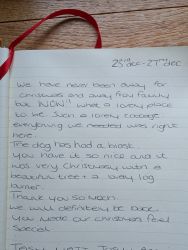 23rd Dec - 27th Dec
We have never been away for
Christmas and away from family
but WOW! what a lovely place
to be. Such a lovely cottage.
everything we needed was right
here.
The dog has had a blast.
You have it so nice and it
was very Christmassy with a
beautiful tree + a lovely log
burner.
Thank you so much
we will definitely be back
You made our Christmas feel
Special.